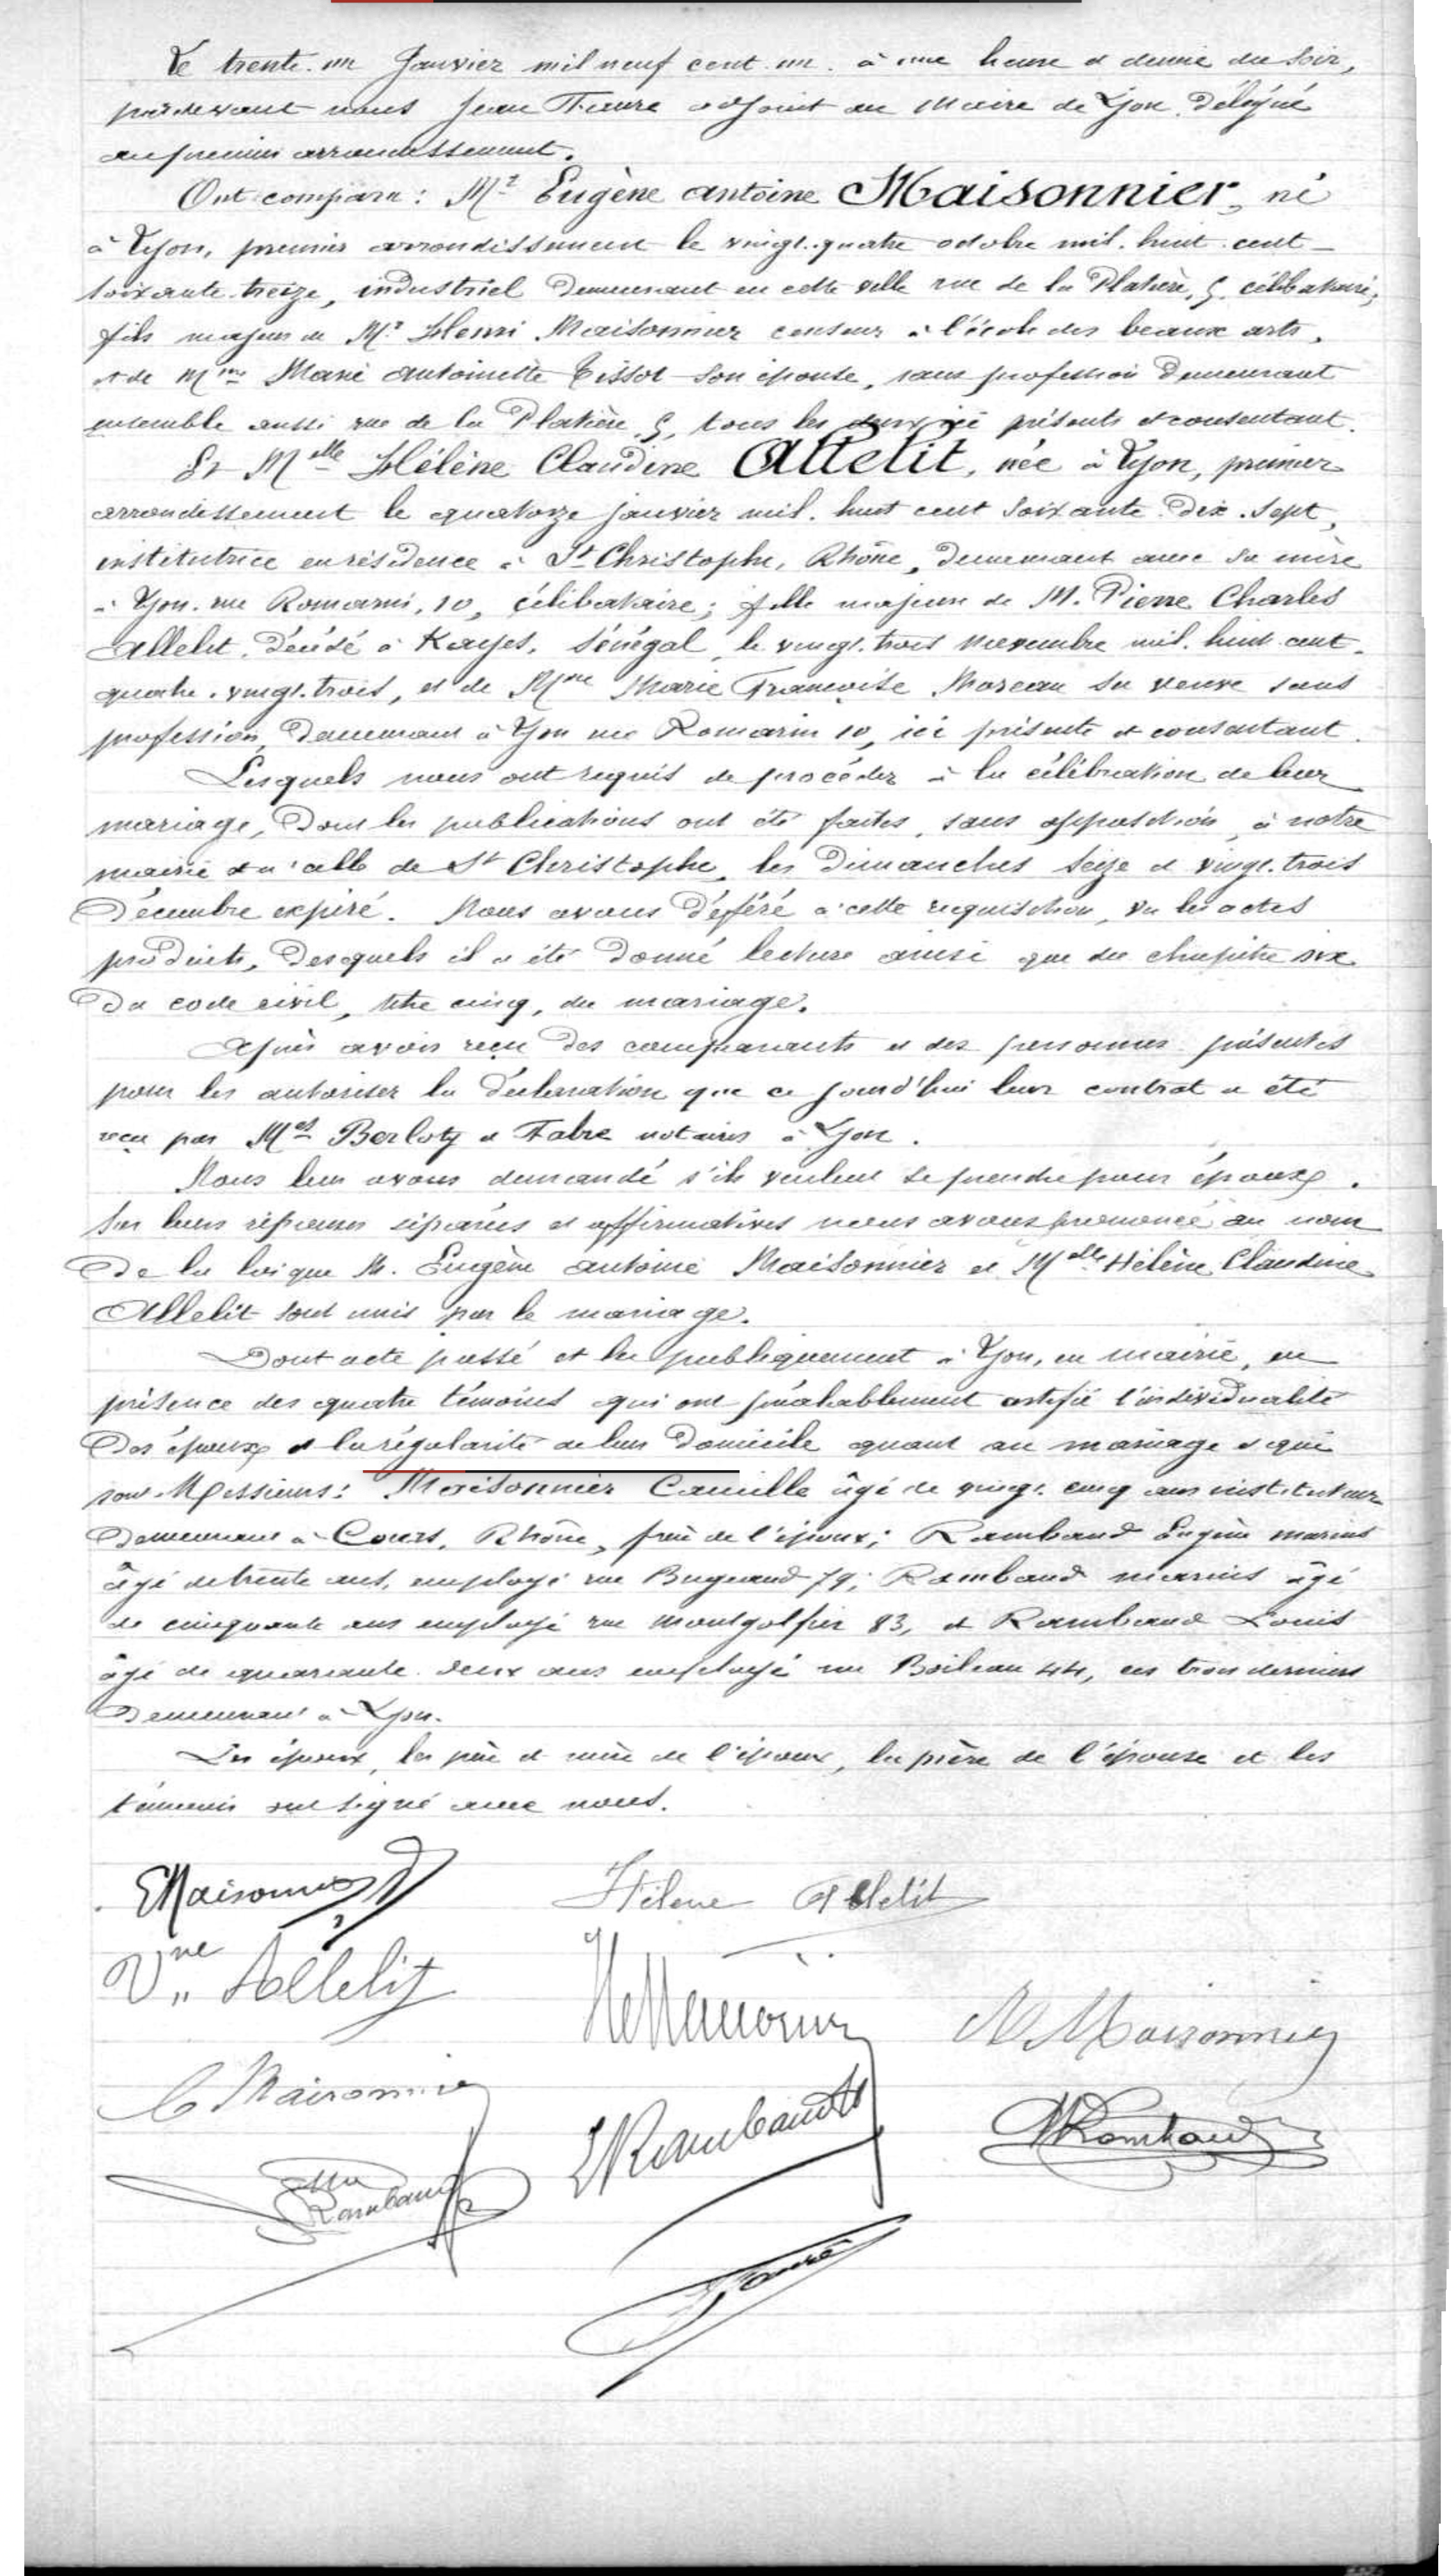 Le trente-un Janvier mil neuf cent un à une heure et demie du soir,
pardevant nous Jean Faure adjoint au Maire de Lyon, délégué
au premier arrondissement.
Ont comparu : Mr Eugène Antoine Maisonnier, né
à Lyon, premier arrondissement le vingt-quatre octobre mil huit cent
soixante-treize, industriel demeurant en cette ville rue de la Platière, 9, célibataire,
fils majeur de Mr Henri Maisonnier censeur à l'école des beaux arts,
et de Mme Marie Antoinette Tissot son épouse, sans profession demeurant
ensemble aussi rue de la Platière, 9, tous les deux ici présents et consentant.
Et Melle Hélène Claudine Allelit, née à Lyon, premier
arrondissement le quatorze janvier mil huit cent soixante-dix-sept,
institutrice en résidence à St Christophe, Rhône, demeurant avec sa mère
à Lyon rue Romarin, 10, célibataire ; fille majeure de M. Pierre Charles
Allelit, décédé à Kayes, Sénégal, le vingt-trois novembre mil huit cent
quatre-vingt-trois, et de Mme Marie Françoise Moreau sa veuve sans
profession, demeurant à Lyon rue Romarin 10, ici présente et consentant.
Lesquels nous ont requis de procéder à la célébration de leur
mariage, dont les publications ont été faites, sans opposition, à notre
mairie et à celle de St Christophe, les dimanches seize et vingt-trois
Décembre expiré. Nous avons déféré à cette requisition, vu les actes
produits, desquels il a été donné lecture ainsi que du chapitre six
du code civil, titre cinq, du mariage.
Après avoir reçu des comparants et des personnes présentes
pour les autoriser la déclaration que ce jourd'hui leur contrat a été
reçu par Mes Berloty et Fabre notaires à Lyon.
Nous leur avons demandé s'ils veulent se prendre pour époux.
Sur leurs réponses séparées et affirmatives nous avons prononcé au nom
de la loi que M. Eugène Antoine Maisonnier et Melle Hélène Claudine
Allelit sont unis par le mariage.
Dont acte passé et lu publiquement à Lyon, en mairie, en
présence des quatre témoins qui ont préalablement certifié l'individualité
des époux et la régularité de leur domicile quant au mariage et qui
sont Messieurs : Maisonnier Camille âgé de vingt-cinq ans instituteur
demeurant à Cours, Rhône, frère de l'époux ; Rambaud Eugène Marius
âgé de trente ans, employé rue Bugeaud 79 ; Rambaud Marius âgé
de cinquante ans employé rue Montgolfier 83, et Rambaud Louis
âgé de quarante-deux ans employé rue Boileau 44, ces trois derniers
demeurant à Lyon.
Les époux, les père et mère de l'époux, la mère de l'épouse et les
témoins ont signé avec nous.
E Maisonnier Hélène Allelit
Vve Allelit H Maisonnier M Maisonnier
C Maisonnier L Rambaud M Rambaud
Rambaud
J Faure